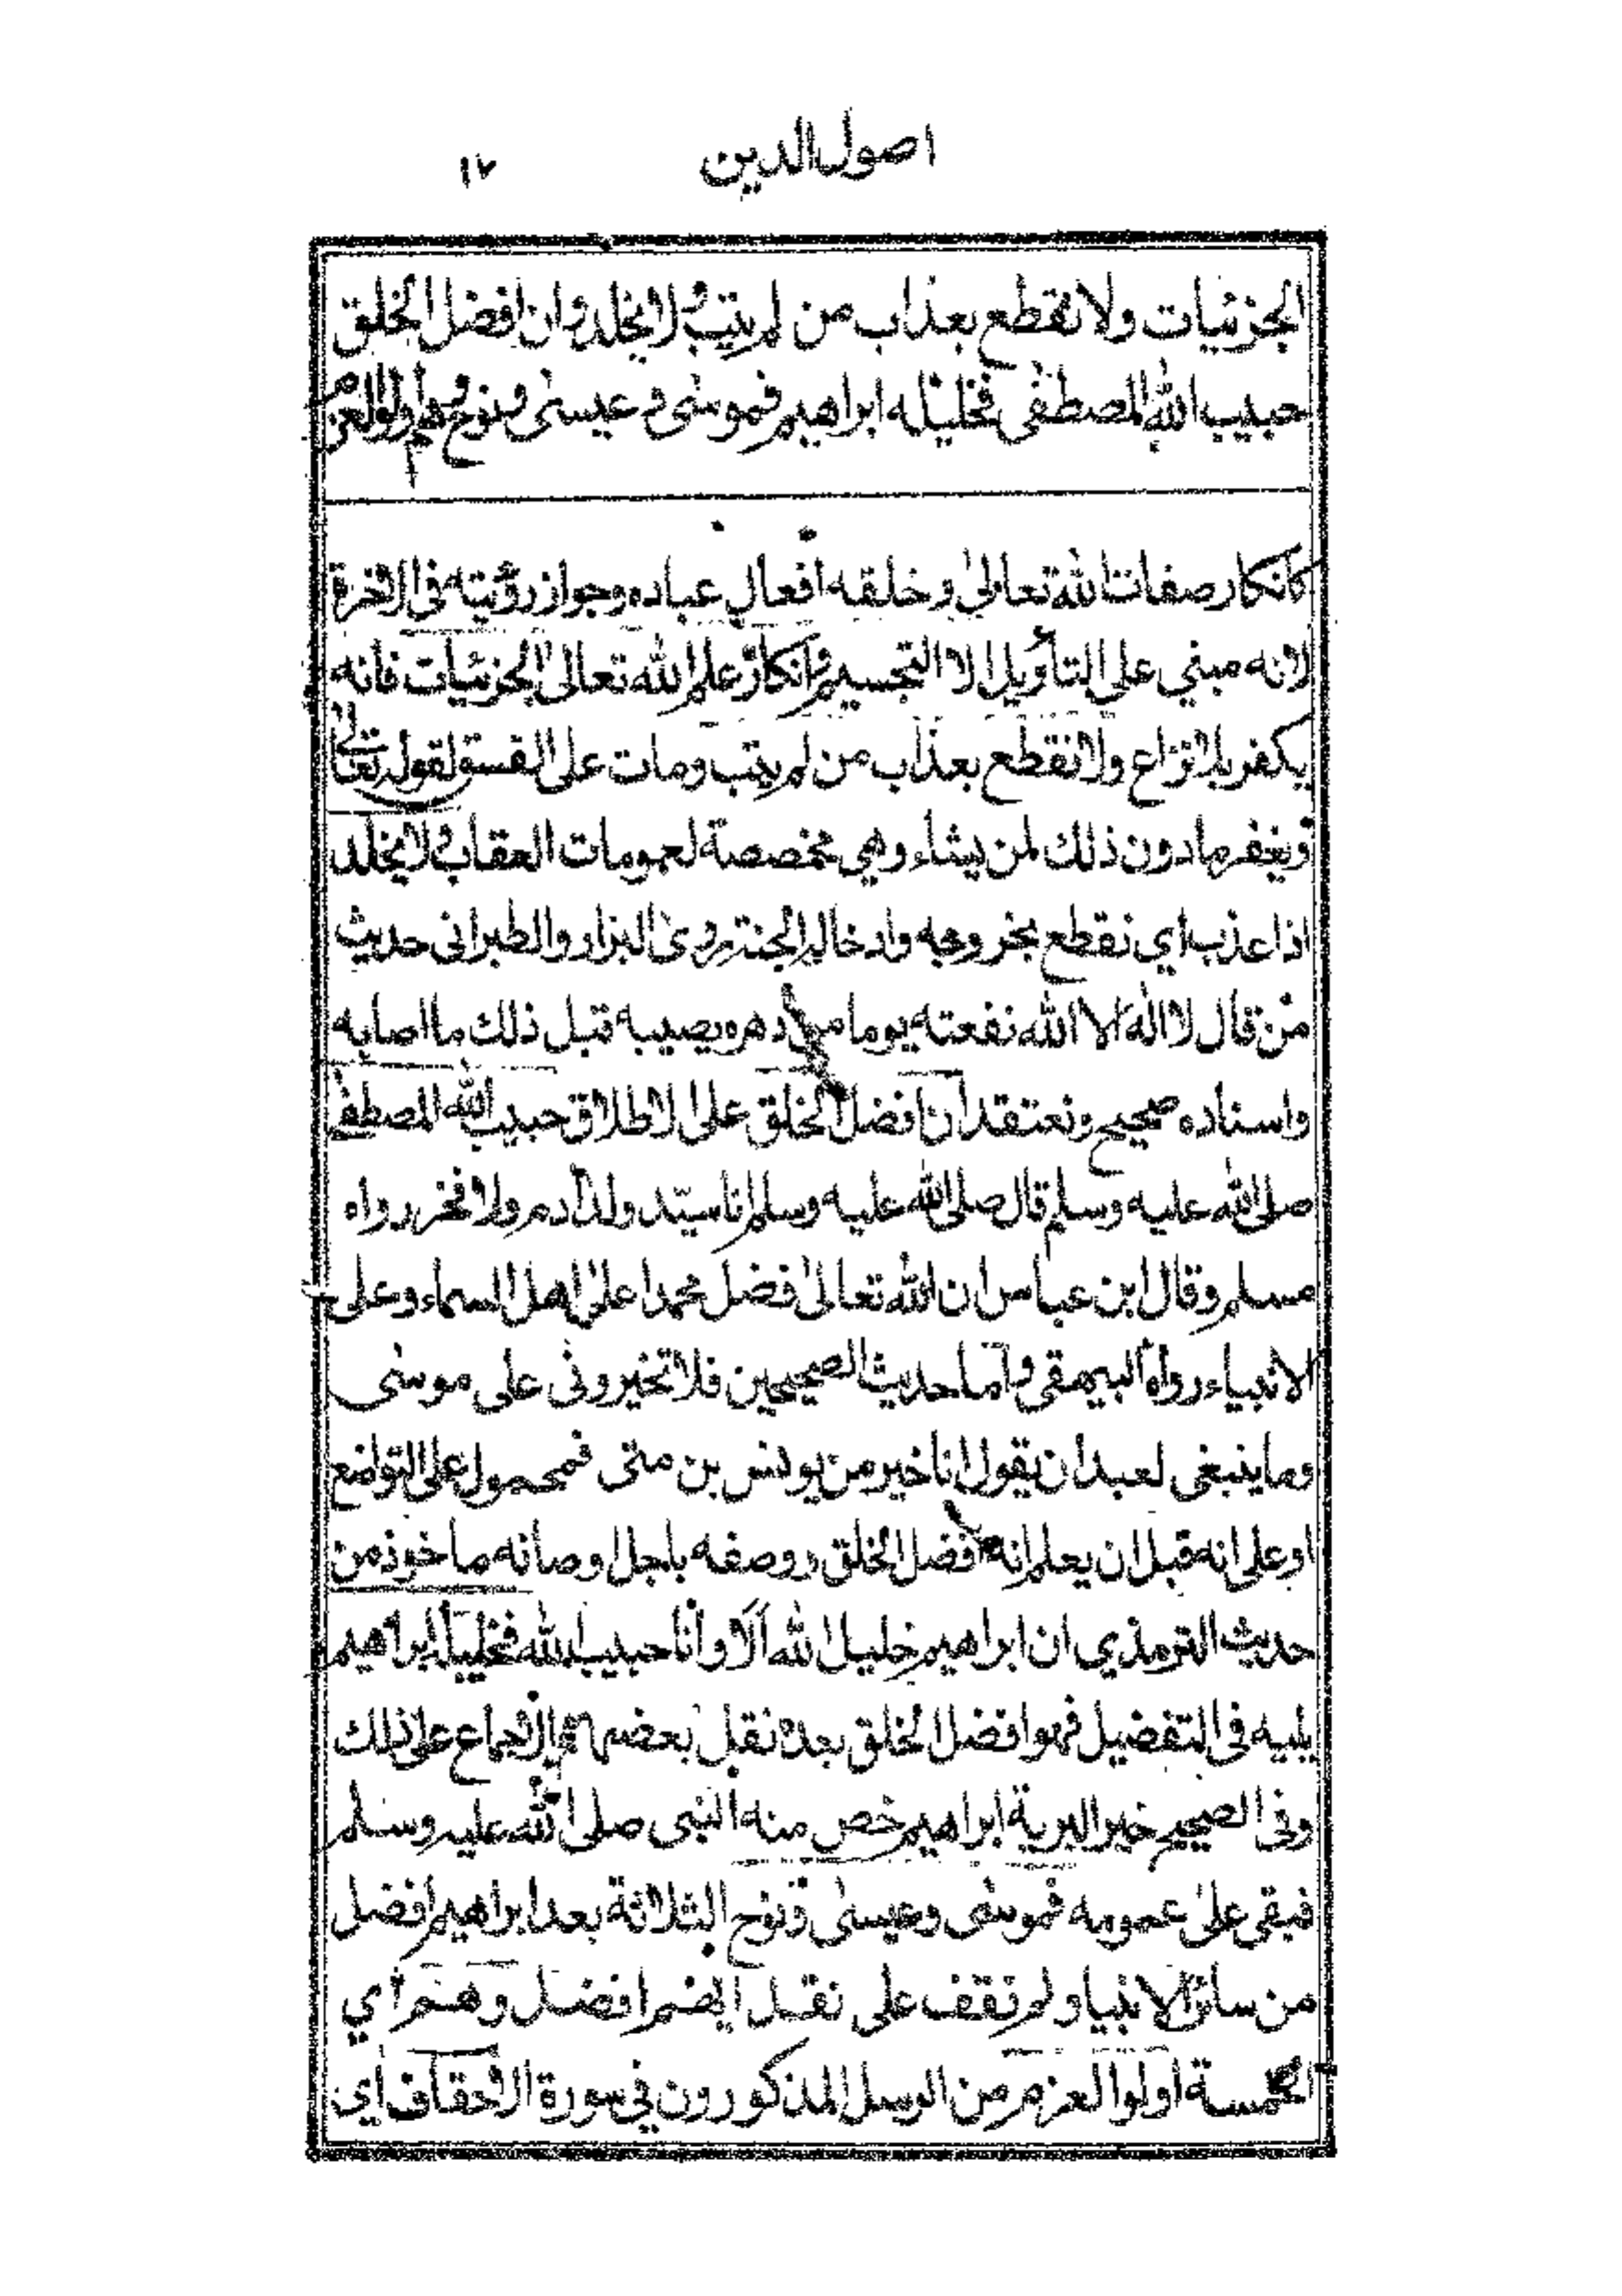 اصول الدين ١٧
الجزئيات ولا نقطع بعذاب من لم يتب ولا يخلد وان افضل الخلق
حبيب الله المصطفى فخليله ابراهيم فموسى وعيسى ونوح وهم اولوا العزم
كانكار صفات الله تعالى وخلقه افعال عباده وجواز رؤيته فى الاخرة
لانه مبني على التأويل الا التجسيم وانكار علم الله تعالى الجزئيات فانه
يكفر بلا نزاع ولا نقطع بعذاب من لم يتب ومات على الفسق لقوله تعالى
ويغفر ما دون ذلك لمن يشاء وهي مخصصة لعمومات العقاب ولا يخلد
اذا عذب أي نقطع بخروجه وادخاله الجنة روى البزار والطبرانى حديث
من قال لا اله الا الله نفعته يوما من دهره يصيبه قبل ذلك ما اصابه
واسناده صحيح ونعتقد أن افضل الخلق على الاطلاق حبيب الله المصطفى
صلى الله عليه وسلم قال صلى الله عليه وسلم انا سيّد ولد آدم ولا فخر رواه
مسلم وقال ابن عباس ان الله تعالى فضل محمدا على اهل السماء وعلى
الانبياء رواه البيهقى وأما حديث الصحيحين فلا تخيرونى على موسى
وما ينبغى لعبد ان يقول انا خير من يونس بن متى فمحمول على التواضع
او على انه قبل ان يعلم انه افضل الخلق ووصفه باجل اوصافه مأخوذ من
حديث الترمذي ان ابراهيم خليل الله ألا وأنا حبيب الله فخليله ابراهيم
يليه فى التفضيل فهو افضل الخلق بعده نقل بعضهم الاجماع على ذلك
وفى الصحيح خير البرية ابراهيم خص منه النبى صلى الله عليه وسلم
فبقى على عمومه فموسى وعيسى ونوح الثلاثة بعد ابراهيم افضل
من سائر الانبيا ولم نقف على نقل ايهم افضل وهم أي
الخمسة اولوا العزم من الرسل المذكورون في سورة الاحقاف اي